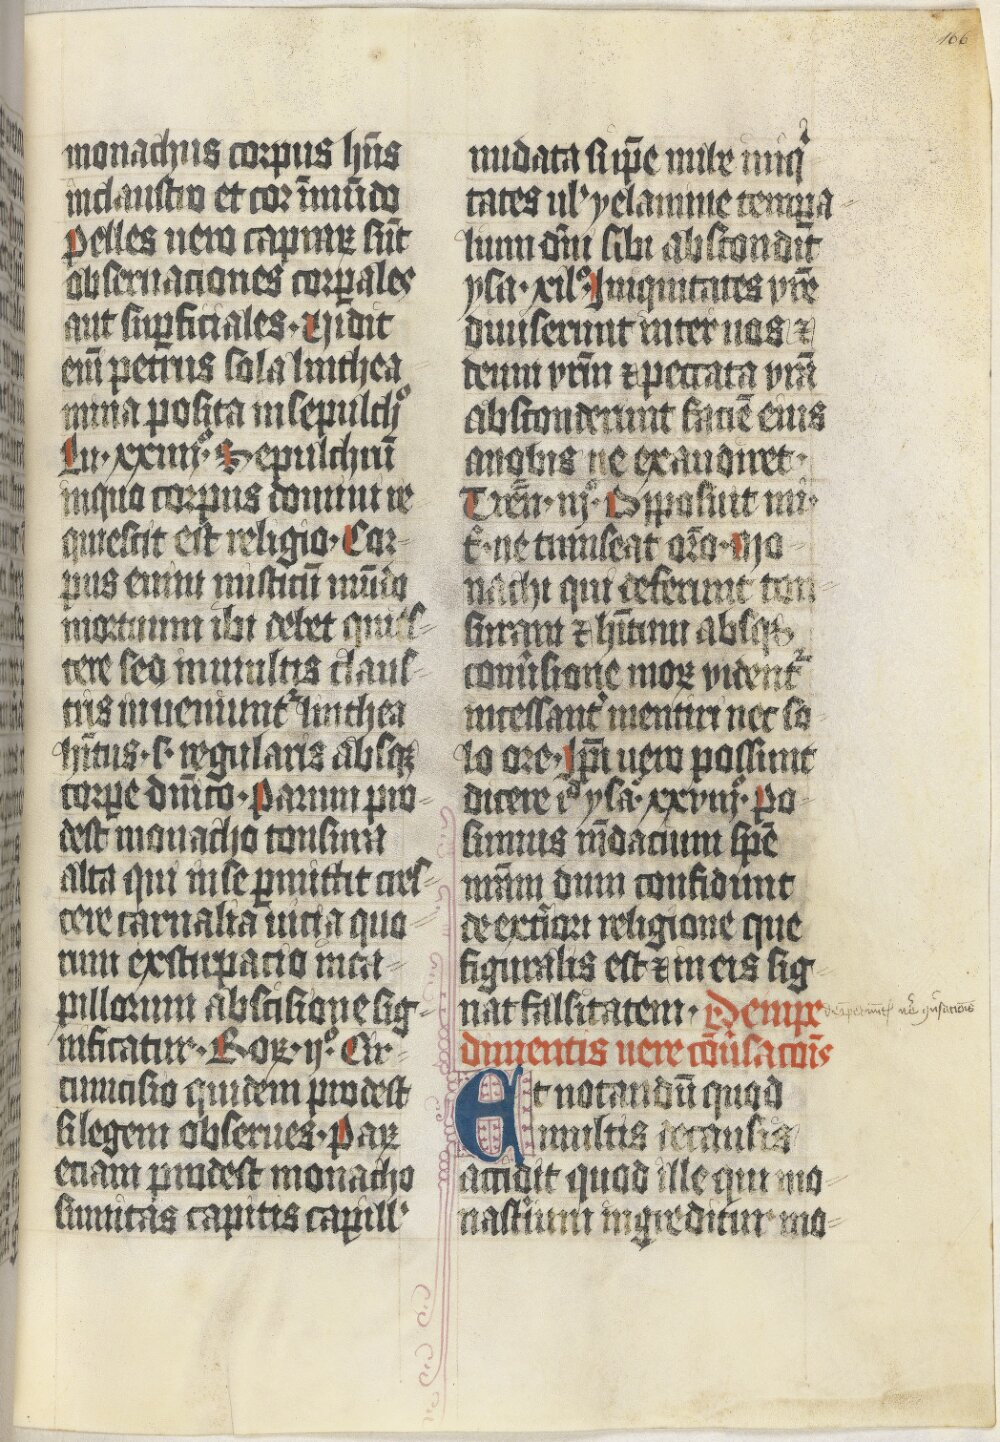 106
monachus corpus hn̄s
inclaustro et cor īmūdo
Pelles uero capraꝝ sūt
obseruaciones corꝑales
aut suꝑficiales. Vidit
eiu petrus sola linthea
mina posita in sepulchͦ
Lu. xxiiijͦ. Sepulchrū
inquo corpus domini re
quiescit est religio. Cor-
pus enim misticū mūdo
mortuum ibi debet quies
cere sed in multis claus
tris inueniunt᷑ linthea
hītus. s. regularis absqꝫ
corꝑe dnīco. Parum pro
dest monacho tonsura
alta qui in se ꝑmittit cres
cere carnalia uicia quo
rum exstirpacio in ca
pillorum abscisione sig
nificatur. Roꝝ. ijͦ. Cir
cumcisio quidem prodest
si legem obserues. Paꝝ
eciam prodest monacho
sumitas capitis capill'
nudata si ip̄e mile iniqͥ
tates ul' velamine tempa
lium dn̄i sibi abscondit
ysa. xilͦ. Iniquitates vr̄e
diuiserunt inter uos ⁊
deum vrm̄ ⁊ peccata vrā
absconderunt faciē eius
a nobis ne exaudiret.
Tren̄. iijͦ. Opposuit nu
b̄. ne transeat orō. Mo
nachi qui deferunt ton
suram ⁊ hītum absqꝫ
conūsione moꝝ vident᷑
incessant᷑ mentiri nec so
lo ore. Ip̄i uero possunt
dicere iͦ ysaͣ. xxviijͦ. Po
suimus mēdacium spē
nrām dum confidunt
de extīori religione que
figuralis est ⁊ in eis sig
nat falsitatem. De impe
dimentis uere cōūsacōis
de īpedimētis ue gūsatiōis
Et notandū quod
multis de causis
accidit quod ille qui mo
nastīum ingreditur mo